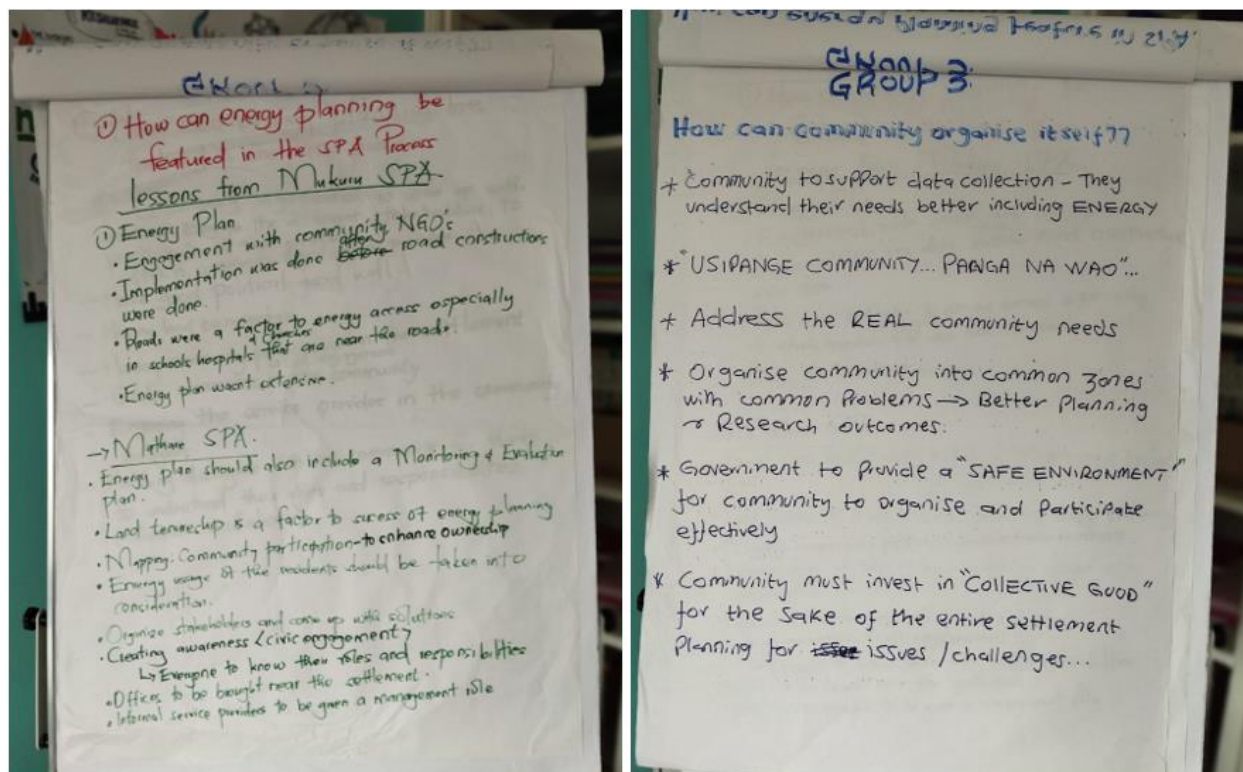 ① How can energy planning be
featured in the SPA Process
lessons from Mukuru SPA
① Energy Plan
• Engagement with community NGO's
• Implementation was done before after road constructions
were done.
• Roads were a factor to energy access especially
in schools hospitals & churches that are near the roads
• Energy plan wasnt extensive.
→ Mathare SPA.
• Energy plan should also include a Monitoring & Evaluation
plan.
• Land tenureship is a factor to sucess of energy planning
• Mapping: Community participation - to enhance ownership
• Energy usage of the residents should be taken into
consideration.
• Organize stakeholders and come up with solutions
• Creating awareness <civic engagement>
↳ Everyone to know their roles and responsibilities
• Offices to be bought near the settlement.
• Informal service providers to be given a management role
GROUP 3
How can community organise itself??
* Community to support data collection - They
understand their needs better including ENERGY
* "USIPANGE COMMUNITY... PANGA NA WAO"...
* Address the REAL community needs
* Organise community into common zones
with common Problems → Better Planning
& Research outcomes.
* Government to Provide a "SAFE ENVIRONMENT"
for community to organise and Participate
effectively
* Community must invest in "COLLECTIVE GOOD"
for the sake of the entire settlement
Planning for issues / challenges...